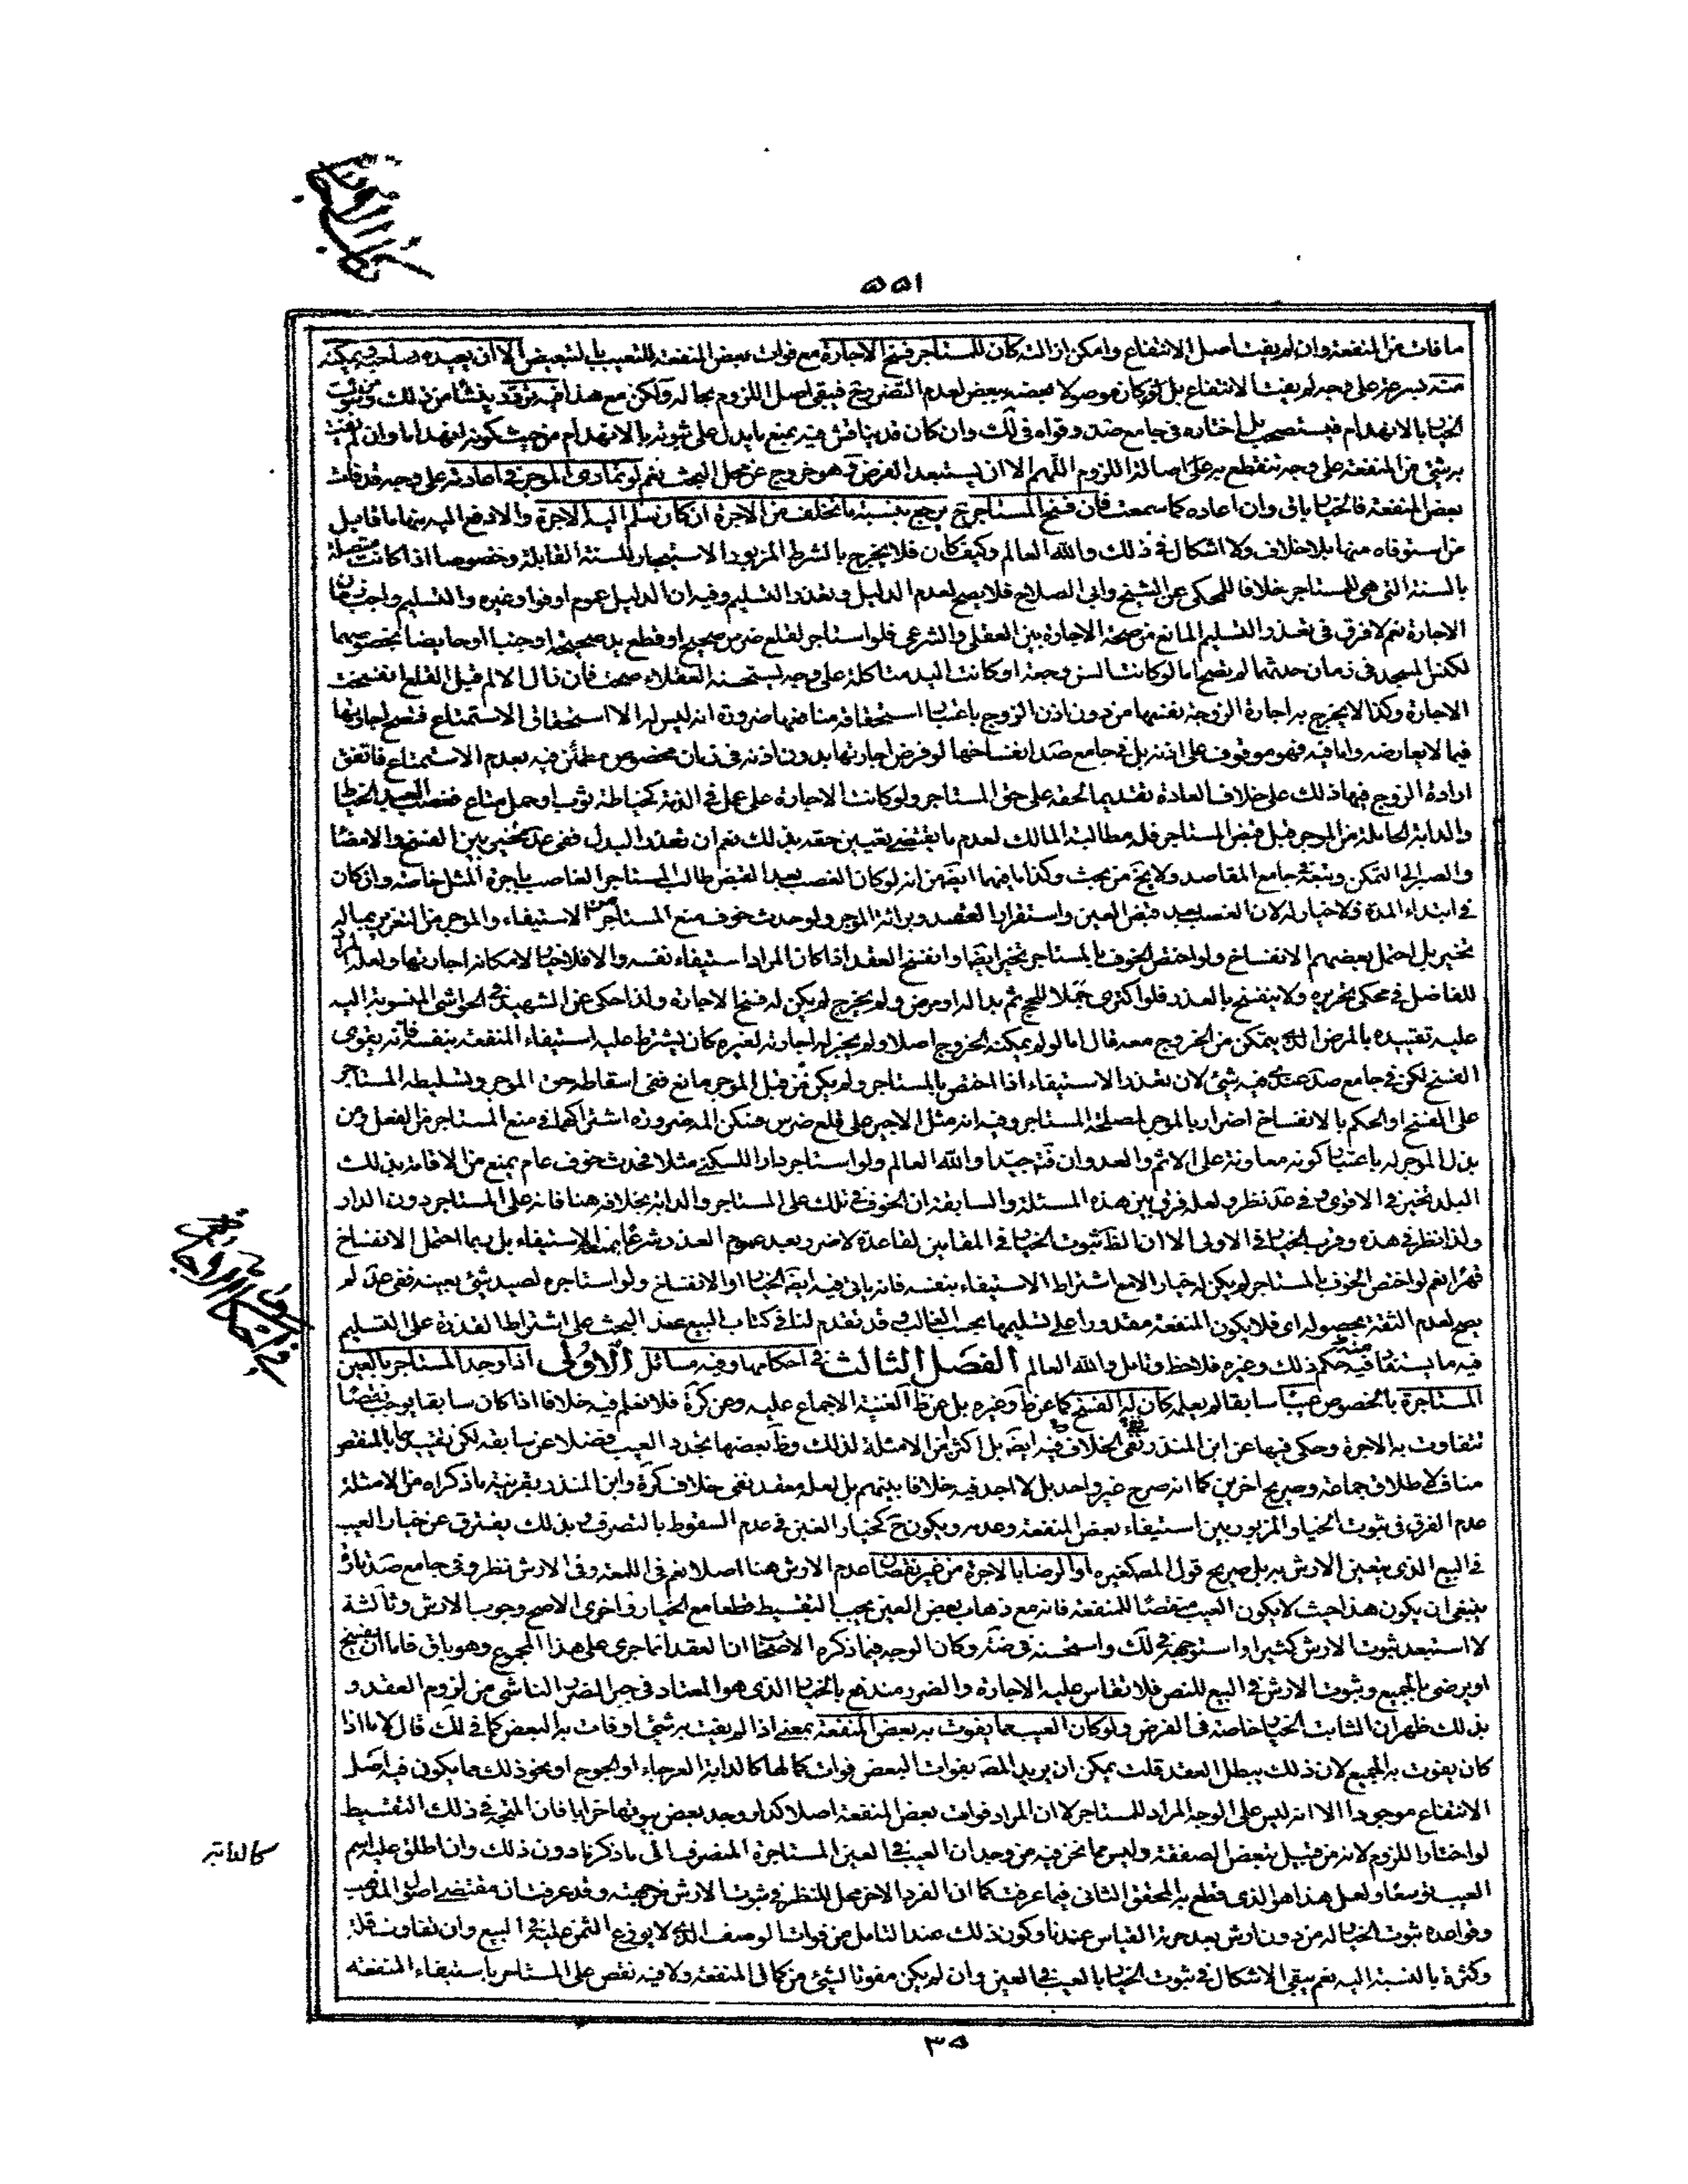 ٥٥١
ما فات من المنفعة وان لم يفت اصل الانتفاع وامكن ازالته كان للمستاجر فسخ الاجارة مع فوات بعض المنفعة للتعيب بل لتبعيض الا ان يعيده صاحبه ويمكنه
منه بسرعة على وجه لم يفت الانتفاع بل لو كان موصولا بعضه ببعض لعدم التضرر ح فيبقى اصل اللزوم بحاله ولكن مع هذا فيه تردد ينشا من ذلك ومن ثبوت
الخيار بالانهدام فيستصحب بل اختاره في جامع صد وقواه في لك وان كان قد يناقش فيه بمنع ما يدل على ثبوته بالانهدام من حيث كونه انهداما وان لم يفت
به شئ من المنفعة على وجه تنقطع به على اصالة اللزوم اللهم الا ان يستبعد الفرض فهو خروج عن محل البحث نعم لو تمادى الموجر في اعادته على وجه قد فات
بعض المنفعة فالخيار باق وان اعاده كما سمعت فان فسخ المستاجر ح يرجع بنسبة ما تخلف من الاجرة ان كان سلم اليه الاجرة والا دفع اليه منها ما قابل
من استوفاه منها بلا خلاف ولا اشكال في ذلك والله العالم وكيف كان فلا يخرج بالشرط المزبور الاستيجار للسنة القابلة وخصوصا اذا كانت متصلة
بالسنة التي هي للمستاجر خلافا للمحكي عن الشيخ وابي الصلاح فلا يصح لعدم الدليل وتعذر التسليم وفيه ان الدليل عموم اوفوا وغيره والتسليم واجب زمان
الاجارة نعم لا فرق في تعذر التسليم المانع من صحة الاجارة بين العقلي والشرعي فلو استاجر لقلع ضرس صحيح او قطع يد صحيحة او جنبا او حايضا بخصوصهما
لكنس المسجد في زمان حدثهما لم يصح اما لو كانت السن وجعة او كانت اليد متاكلة على وجه يستحسنه العقلاء صحت فان زال الالم قبل القلع انفسخت
الاجارة وكذا لا يخرج به اجارة الزوجة نفسها من دون اذن الزوج باعتبار استحقاقه منافعها ضرورة انه ليس له الا استحقاق الاستمتاع فتصح اجارتها
فيما لا يعارضه واما فيه فهو موقوف على اذنه بل في جامع صد انفساخها لو فرض اجارتها بدون اذنه في زمان مخصوص مطمئن فيه بعدم الاستمتاع فاتفق
ارادة الزوج فيها ذلك على خلاف العادة تقديما لحقه على حق المستاجر ولو كانت الاجارة على عمل في الذمة كخياطة ثوب او حمل متاع فغصب العبد الخياط
والدابة الحاملة من الموجر قبل قبض المستاجر فله مطالبة المالك لعدم ما يقتضي تعيين حقه بذلك نعم ان تعذر البدل ففي عد تخير بين الفسخ والامضاء
والصبر الى التمكن وتبعه جامع المقاصد ولا يخ من بحث وكذا ما فيهما ايضا من انه لو كان الغصب بعد القبض طالب المستاجر الغاصب باجرة المثل خاصة وان كان
في ابتداء المدة فلا خيار له لان الغصب بعد قبض العين واستقرار العقد وبرائة الموجر ولو حدث خوف منع المستاجر من الاستيفاء والموجر من التغرير بماله
تخير بل احتمل بعضهم الانفساخ ولو اختص الخوف بالمستاجر تخير ايضا وانفسخ العقد اذا كان المراد استيفاء نفسه والا فلا خيار لامكانه اجارتها ولعله
للفاضل في محكي تحريره ولا ينفسخ بالعذر فلو اكترى جملا للحج ثم بدا له او مرض ولم يخرج لم يكن له فسخ الاجارة ولذا حكى عن الشهيد في الحواشي المنسوبة اليه
عليه تقييده بالمرض الذي يتمكن من الخروج معه قال اما لو لم يمكنه الخروج اصلا ولم يجز له اجارته لغيره كان يشترط عليه استيفاء المنفعة بنفسه فانه يقوى
الفسخ لكن في جامع صد عندي فيه شئ لان تعذر الاستيفاء اذا اختص بالمستاجر ولم يكن من قبل الموجر مانع ففي اسقاط حق الموجر وتسليط المستاجر
على الفسخ او الحكم بالانفساخ اضرار بالموجر لمصلحة المستاجر وفيه انه مثل الاجير على قلع ضرس فسكن الم ضرورة اشتراكهما في منع المستاجر من الفعل وان
بذل الموجر له باعتبار كونه معاونة على الاثم والعدوان فتج جيدا والله العالم ولو استاجر دارا للسكنى مثلا فحدث خوف عام يمنع من الاقامة بذلك
البلد تخير في الاقوى وفي عد نظر ولعله فرق بين هذه المسئلة والسابقة ان الخوف في تلك على المستاجر والدابة بخلافه هنا فانه على المستاجر دون الدار
ولذا نظر في هذه وقرب الخيار في الاولى الا ان الظ ثبوت الخيار في المقامين لقاعدة لا ضرر وبعد عموم العذر شرعا يمنع الاستيفاء بل ربما احتمل الانفساخ
قهرا نعم لو اختص الخوف بالمستاجر لم يكن له خيار الا مع اشتراط الاستيفاء بنفسه فانه ياتي فيه ايضا الخيار او الانفساخ ولو استاجره لصيد شئ بعينه ففي عد لم
يصح لعدم الثقة بحصوله اي فلا يكون المنفعة مقدورا على تسليمها بحسب الغالب وقد تقدم لنا في كتاب البيع عند البحث على اشتراط القدرة على التسليم
فيه ما يستفاد منه حكم ذلك وغيره فلاحظ وتامل والله العالم الفصل الثالث في احكامها وفيه مسائل الاولى اذا وجد المستاجر بالعين
المستاجرة بالخصوص عيبا سابقا لم يعلمه كان له الفسخ كما عن ط وغيره بل عن ظ الغنية الاجماع عليه وعن كرة فلا نعلم فيه خلافا اذا كان سابقا يوجب نقصا
تتفاوت به الاجرة وحكى فيها عن ابن المنذر نفي الخلاف فيه ايضا بل اكثر من الامثلة لذلك وظ بعضها تجدد العيب فضلا عن سابقه لكن تقييدها بالمنقص
مناف لاطلاق جماعة وصريح اخرين كما انه صرح غير واحد بل لا اجد فيه خلافا بينهم بل لعله معقد نفي خلاف كرة وابن المنذر بقرينة ما ذكراه من الامثلة
عدم الفرق في ثبوت الخيار المزبور بين استيفاء بعض المنفعة وعدمه ويكون ح كخيار الغبن في عدم السقوط بالتصرف وبذلك يفترق عن خيار العيب
في البيع الذي يتعين الارش به بل صريح قول المص كغيره او الرضا بالاجرة من غير نقصان عدم الارش هنا اصلا نعم في اللمعة وفي الارش نظر وفي جامع صد تارة
ينبغي ان يكون هذا حيث لا يكون العيب منقصا للمنفعة فانه مع ذهاب بعض العين يجب التقسيط قطعا مع الخيار واخرى الاصح وجوب الارش وثالثة
لا استبعد ثبوت الارش كثيرا واستوجهه في لك واستحسنه في ضة وكان الوجه فيما ذكره الاصحاب ان العقد انما جرى على هذا المجموع وهو باق فاما ان يفسخ
او يرضى بالجميع وثبوت الارش في البيع للنص فلا تقاس عليه الاجارة والضرر مندفع بالخيار الذي هو المعتاد في جبر الضرر الناشي من لزوم العقد و
بذلك ظهر ان الثابت الخيار خاصة في الفرض ولو كان العيب مما يفوت به بعض المنفعة بمعنى اذا لم يفت به شئ او فات به البعض كما في لك قال لا ما اذا
كان يفوت به الجميع لان ذلك يبطل العقد قلت يمكن ان يريد المص بفوات البعض فوات كمالها كالدابة العرجاء او الجموح او نحو ذلك مما يكون فيه اصل
الانتفاع موجودا الا انه ليس على الوجه المراد للمستاجر لا ان المراد فوات بعض المنفعة اصلا كدار وجد بعض بيوتها خرابا فان المتجه في ذلك التقسيط
لو اختار اللزوم لانه من قبيل تبعض الصفقة وليس مما نحن فيه من وجدان العيب في العين المستاجرة المنصرف الى ما ذكرنا دون ذلك وان اطلق عليه اسم
العيب توسعا ولعل هذا هو الذي قطع به المحقق الثاني فيما عرفت كما ان الفرد الاخر محل للنظر في ثبوت الارش من جهته وقد عرفت ان مقتضى اصول المذهب
وقواعده ثبوت الخيار له من دون ارش بعد حرمة القياس عندنا وكون ذلك عند التامل من فوات الوصف الذي لا يوزع الثمن عليه في البيع وان تفاوت قلة
وكثرة بالنسبة اليه نعم يبقى الاشكال في ثبوت الخيار بالعيب في العين وان لم يكن مفوتا لشئ من كمال المنفعة ولا فيه نقص على المستاجر باستيفاء المنفعة
كالدابة
٣٥